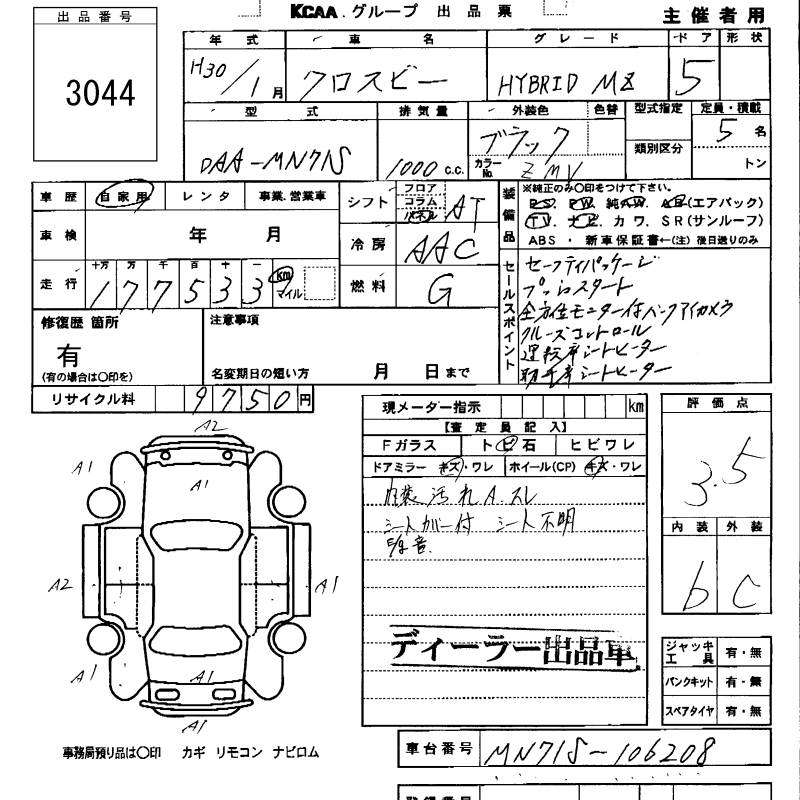 KCAA.グループ 出品票
主催者用
出品番号
3044
年式 車名 グレード ドア 形状
H30/1月 クロスビー HYBRID MZ 5
型式 排気量 外装色 色替 型式指定 定員・積載
DAA-MN71S 1000 c.c. ブラック
カラーNo. ZMV
類別区分
5名
トン
車歴 自家用 レンタ 事業.営業車
シフト フロア コラム パネル AT
装備品
※純正のみ〇印をつけて下さい。
PS. PW. 純AW. AB(エアバック)
TV. ナビ. カワ. SR(サンルーフ)
ABS ・ 新車保証書←(注)後日送りのみ
車検 年 月
冷房 AAC
走行 十万 万 千 百 十 一
177533 km マイル
燃料 G
セールスポイント
セーフティパッケージ
プッシュスタート
全方位モニター付バックアイカメラ
クルーズコントロール
運転席シートヒーター
助手席シートヒーター
修復歴 箇所
有
(有の場合は〇印を)
注意事項
名変期日の短い方 月 日まで
リサイクル料 9750円
現メーター指示 km
評価点
3.5
【査定員記入】
Fガラス トビ石 ヒビワレ
ドアミラー キズ・ワレ ホイール(CP) キズ・ワレ
内装汚れ A.スレ
シートカバー付 シート不明
内装 外装
b C
A2
A1
A1
A2
A1
A1
A1
A1
ディーラー出品車
ジャッキ工具 有・無
パンクキット 有・無
スペアタイヤ 有・無
事務局預り品は〇印 カギ リモコン ナビロム
車台番号 MN71S-106208